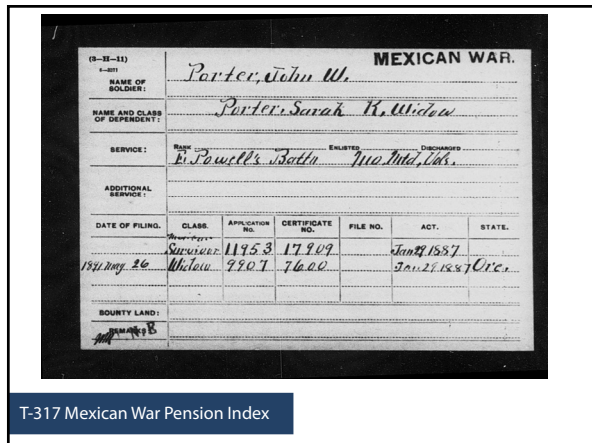 MEXICAN WAR.
(3—H—11)
6—2071
NAME OF SOLDIER: Porter, John W.
NAME AND CLASS OF DEPENDENT: Porter, Sarah K. Widow
SERVICE: RANK ENLISTED DISCHARGED
E. Powell's Battn Mo. Mtd, Vols.
ADDITIONAL SERVICE:
DATE OF FILING. CLASS. APPLICATION NO. CERTIFICATE NO. FILE NO. ACT. STATE.
Survivor 11953 17909 Jan 29 1887
1891 May 26 Widow 9907 7600 Jan 29 1887 Ore.
BOUNTY LAND:
REMARKS: B
T-317 Mexican War Pension Index